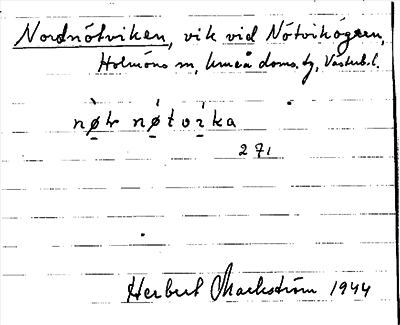 Nordnötviken, vik vid Nötvikögern,
Holmöns sn, Umeå doms. tg, Västerb. l.
nø̀r nǿtvika
271
Herbert Markström 1944